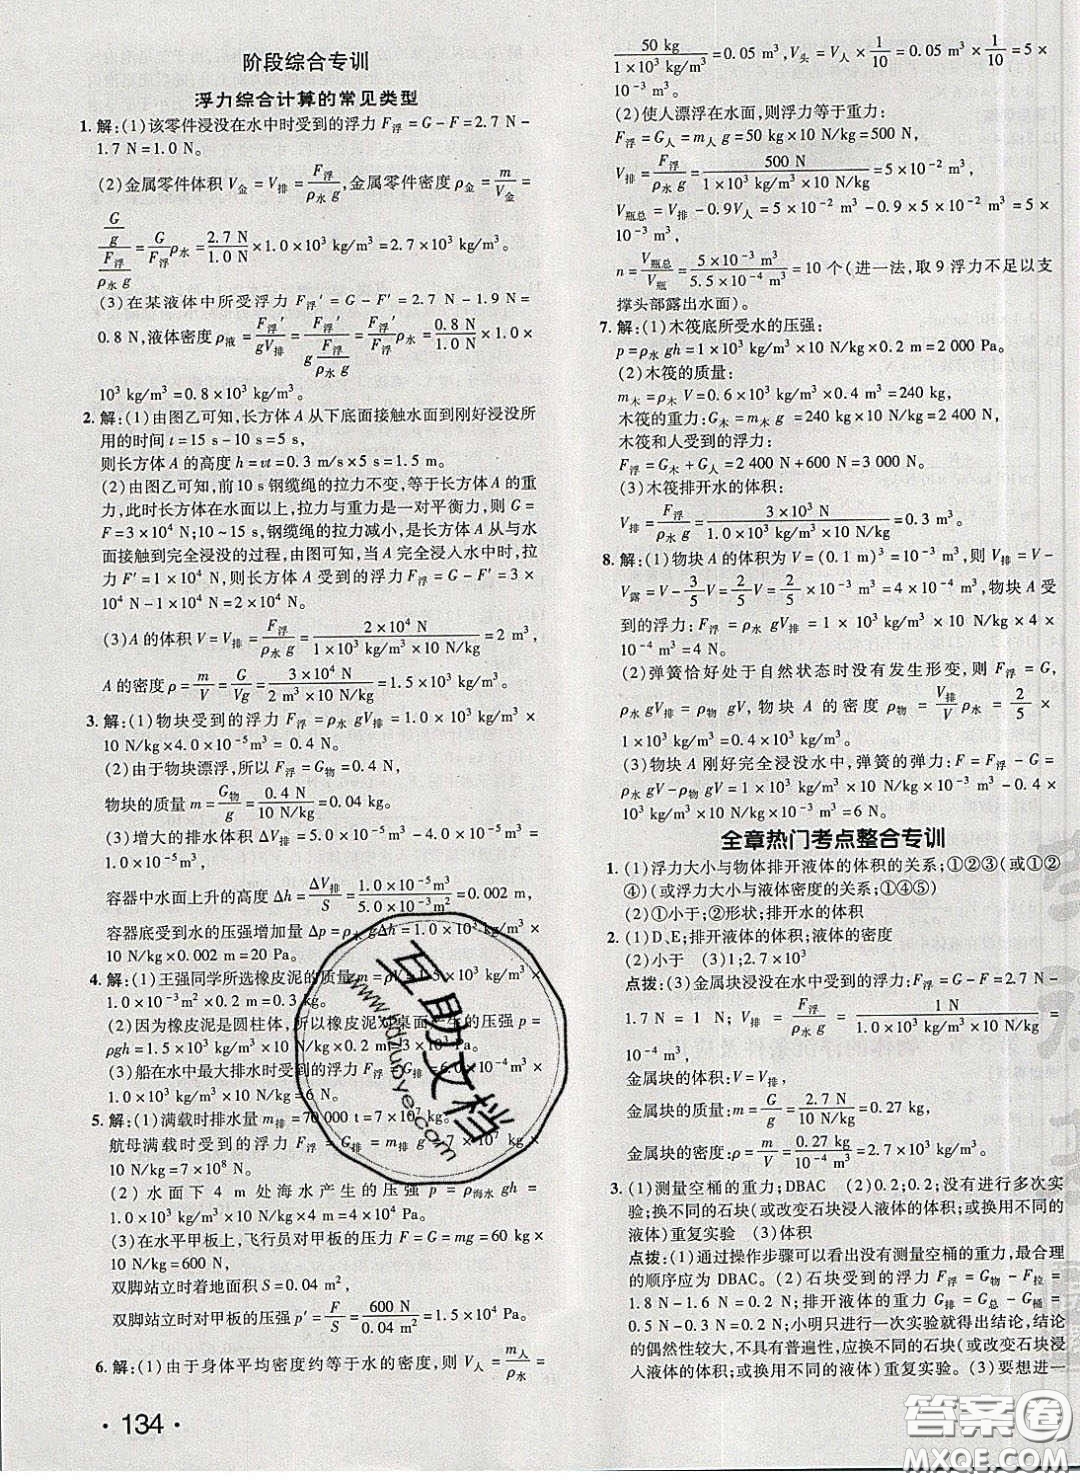 阶段综合专训
浮力综合计算的常见类型
1. 解:(1)该零件浸没在水中时受到的浮力 F浮=G-F=2.7 N-
1.7 N=1.0 N。
(2)金属零件体积 V金=V排=F浮/ρ水 g,金属零件密度 ρ金=m/V金=
(G/g)/(F浮/ρ水 g)=G/F浮 ρ水=2.7 N/1.0 N×1.0×10³ kg/m³=2.7×10³ kg/m³。
(3)在某液体中所受浮力 F浮′=G-F′=2.7 N-1.9 N=
0.8 N,液体密度 ρ液=F浮′/gV排=F浮′/(g F浮/ρ水 g)=F浮′/F浮 ρ水=0.8 N/1.0 N×1.0×
10³ kg/m³=0.8×10³ kg/m³。
2. 解:(1)由图乙可知,长方体 A 从下底面接触水面到刚好浸没所
用的时间 t=15 s-10 s=5 s,
则长方体 A 的高度 h=vt=0.3 m/s×5 s=1.5 m。
(2)由图乙可知,前 10 s 钢缆绳的拉力不变,等于长方体 A 的重
力,此时长方体在水面以上,拉力与重力是一对平衡力,则 G=
F=3×10⁴ N;10~15 s,钢缆绳的拉力减小,是长方体 A 从与水
面接触到完全浸没的过程,由图可知,当 A 完全浸入水中时,拉
力 F′=1×10⁴ N,则长方体 A 受到的浮力 F浮=G-F′=3×
10⁴ N-1×10⁴ N=2×10⁴ N。
(3)A 的体积 V=V排=F浮/ρ水 g=2×10⁴ N/1×10³ kg/m³×10 N/kg=2 m³,
A 的密度 ρ=m/V=G/Vg=3×10⁴ N/2 m³×10 N/kg=1.5×10³ kg/m³。
3. 解:(1)物块受到的浮力 F浮=ρ水 gV排=1.0×10³ kg/m³×
10 N/kg×4.0×10⁻⁵ m³= 0.4 N。
(2)由于物块漂浮,所以 F浮=G物=0.4 N,
物块的质量 m=G物/g=0.4 N/10 N/kg=0.04 kg。
(3)增大的排水体积 ΔV排=5.0×10⁻⁵ m³-4.0×10⁻⁵ m³=
1.0×10⁻⁵ m³,
容器中水面上升的高度 Δh=ΔV排/S=1.0×10⁻⁵ m³/5.0×10⁻³ m²=0.002 m,
容器底受到水的压强增加量 Δp=ρ水 gΔh=1.0×10³ kg/m³×
10 N/kg×0.002 m=20 Pa。
4. 解:(1)王强同学所选橡皮泥的质量 m=ρV=1.5×10³ kg/m³×
1.0×10⁻³ m²×0.2 m=0.3 kg。
(2)因为橡皮泥是圆柱体,所以橡皮泥对桌面产生的压强 p=
ρgh=1.5×10³ kg/m³×10 N/kg×0.2 m=3 000 Pa。
(3)船在水中最大排水时受到的浮力 F浮=ρ水 gV排=1.0×
10³ kg/m³×10 N/kg×6×10⁻⁴ m³=6 N。
5. 解:(1)满载时排水量 m排=70 000 t=7×10⁷ kg,
航母满载时受到的浮力 F浮=G排=m排 g=7×10⁷ kg×
10 N/kg=7×10⁸ N。
(2)水面下 4 m 处海水产生的压强 p=ρ海水 gh=
1.0×10³ kg/m³×10 N/kg×4 m=4×10⁴ Pa。
(3)在水平甲板上,飞行员对甲板的压力 F=G=mg=60 kg×
10 N/kg=600 N,
双脚站立时着地面积 S=0.04 m²,
双脚站立时对甲板的压强 p′=F/S=600 N/0.04 m²=1.5×10⁴ Pa。
6. 解:(1)由于身体平均密度约等于水的密度,则 V人=m人/ρ水=
· 134 ·
50 kg/1×10³ kg/m³=0.05 m³,V头=V人×1/10=0.05 m³×1/10=5×
10⁻³ m³。
(2)使人漂浮在水面,浮力等于重力:
F浮=G人=m人 g=50 kg×10 N/kg=500 N,
V排=F浮/ρ水 g=500 N/1×10³ kg/m³×10 N/kg=5×10⁻² m³,
V瓶总=V排-0.9V人=5×10⁻² m³-0.9×5×10⁻² m³=5×
10⁻³ m³,
n=V瓶总/V瓶=5×10⁻³ m³/5.5×10⁻⁴ m³=10 个(进一法,取 9 浮力不足以支
撑头部露出水面)。
7. 解:(1)木筏底所受水的压强:
p=ρ水 gh=1×10³ kg/m³×10 N/kg×0.2 m=2 000 Pa。
(2)木筏的质量:
m木=ρ木 V=0.6×10³ kg/m³×2 m²×0.2 m=240 kg,
木筏的重力:G木=m木 g=240 kg×10 N/kg=2 400 N,
木筏和人受到的浮力:
F浮=G木+G人=2 400 N+600 N=3 000 N。
(3)木筏排开水的体积:
V排=F浮/ρ水 g=3×10³ N/1×10³ kg/m³×10 N/kg=0.3 m³。
8. 解:(1)物块 A 的体积为 V=(0.1 m)³=10⁻³ m³,则 V排=V-
V露=V-3/5V=2/5V=2/5×10⁻³ m³=4×10⁻⁴ m³,物块 A 受
到的浮力:F浮=ρ水 gV排=1×10³ kg/m³×10 N/kg×4×
10⁻⁴ m³=4 N。
(2)弹簧恰好处于自然状态时没有发生形变,则 F浮=G,
ρ水 gV排=ρ物 gV,物块 A 的密度 ρ物=V排/V ρ水=2/5×
1×10³ kg/m³=0.4×10³ kg/m³。
(3)物块 A 刚好完全浸没水中,弹簧的弹力:F=F浮-G=
ρ水 gV-ρ物 gV=1×10³ kg/m³×10 N/kg×10⁻³ m³-0.4×
10³ kg/m³×10 N/kg×10⁻³ m³=6 N。
全章热门考点整合专训
1. (1)浮力大小与物体排开液体的体积的关系;①②③(或①②
④)(或浮力大小与液体密度的关系;①④⑤)
(2)①小于;②形状;排开水的体积
2. (1)D、E;排开液体的体积;液体的密度
(2)小于 (3)1;2.7×10³
点拨:(3)金属块浸没在水中受到的浮力:F浮=G-F=2.7 N-
1.7 N=1 N;V排=F浮/ρ水 g=1 N/1.0×10³ kg/m³×10 N/kg=
1×10⁻⁴ m³
金属块的体积:V=V排,
金属块的质量:m=G/g=2.7 N/10 N/kg=0.27 kg,
金属块的密度:ρ=m/V=0.27 kg/1×10⁻⁴ m³=2.7×10³ kg/m³。
3. (1)测量空桶的重力;DBAC (2)0.2;0.2;没有进行多次实
验;换不同的石块(或改变石块浸入液体的体积;或换用不同的
液体)重复实验 (3)体积
点拨:(1)通过操作步骤可以看出没有测量空桶的重力,最合理
的顺序应为 DBAC。(2)石块受到的浮力 F浮=G物-F拉=
1.8 N-1.6 N=0.2 N;排开液体的重力 G排=G总-G桶=
0.5 N-0.3 N=0.2 N;小明只进行一次实验就得出结论,结论
的偶然性较大,不具有普遍性,应换不同的石块(或改变石块浸
入液体的体积;或换用不同的液体)重复实验。(3)要想进一
互助文档
www.hdzuoye.com
答案圈
MXQE.COM